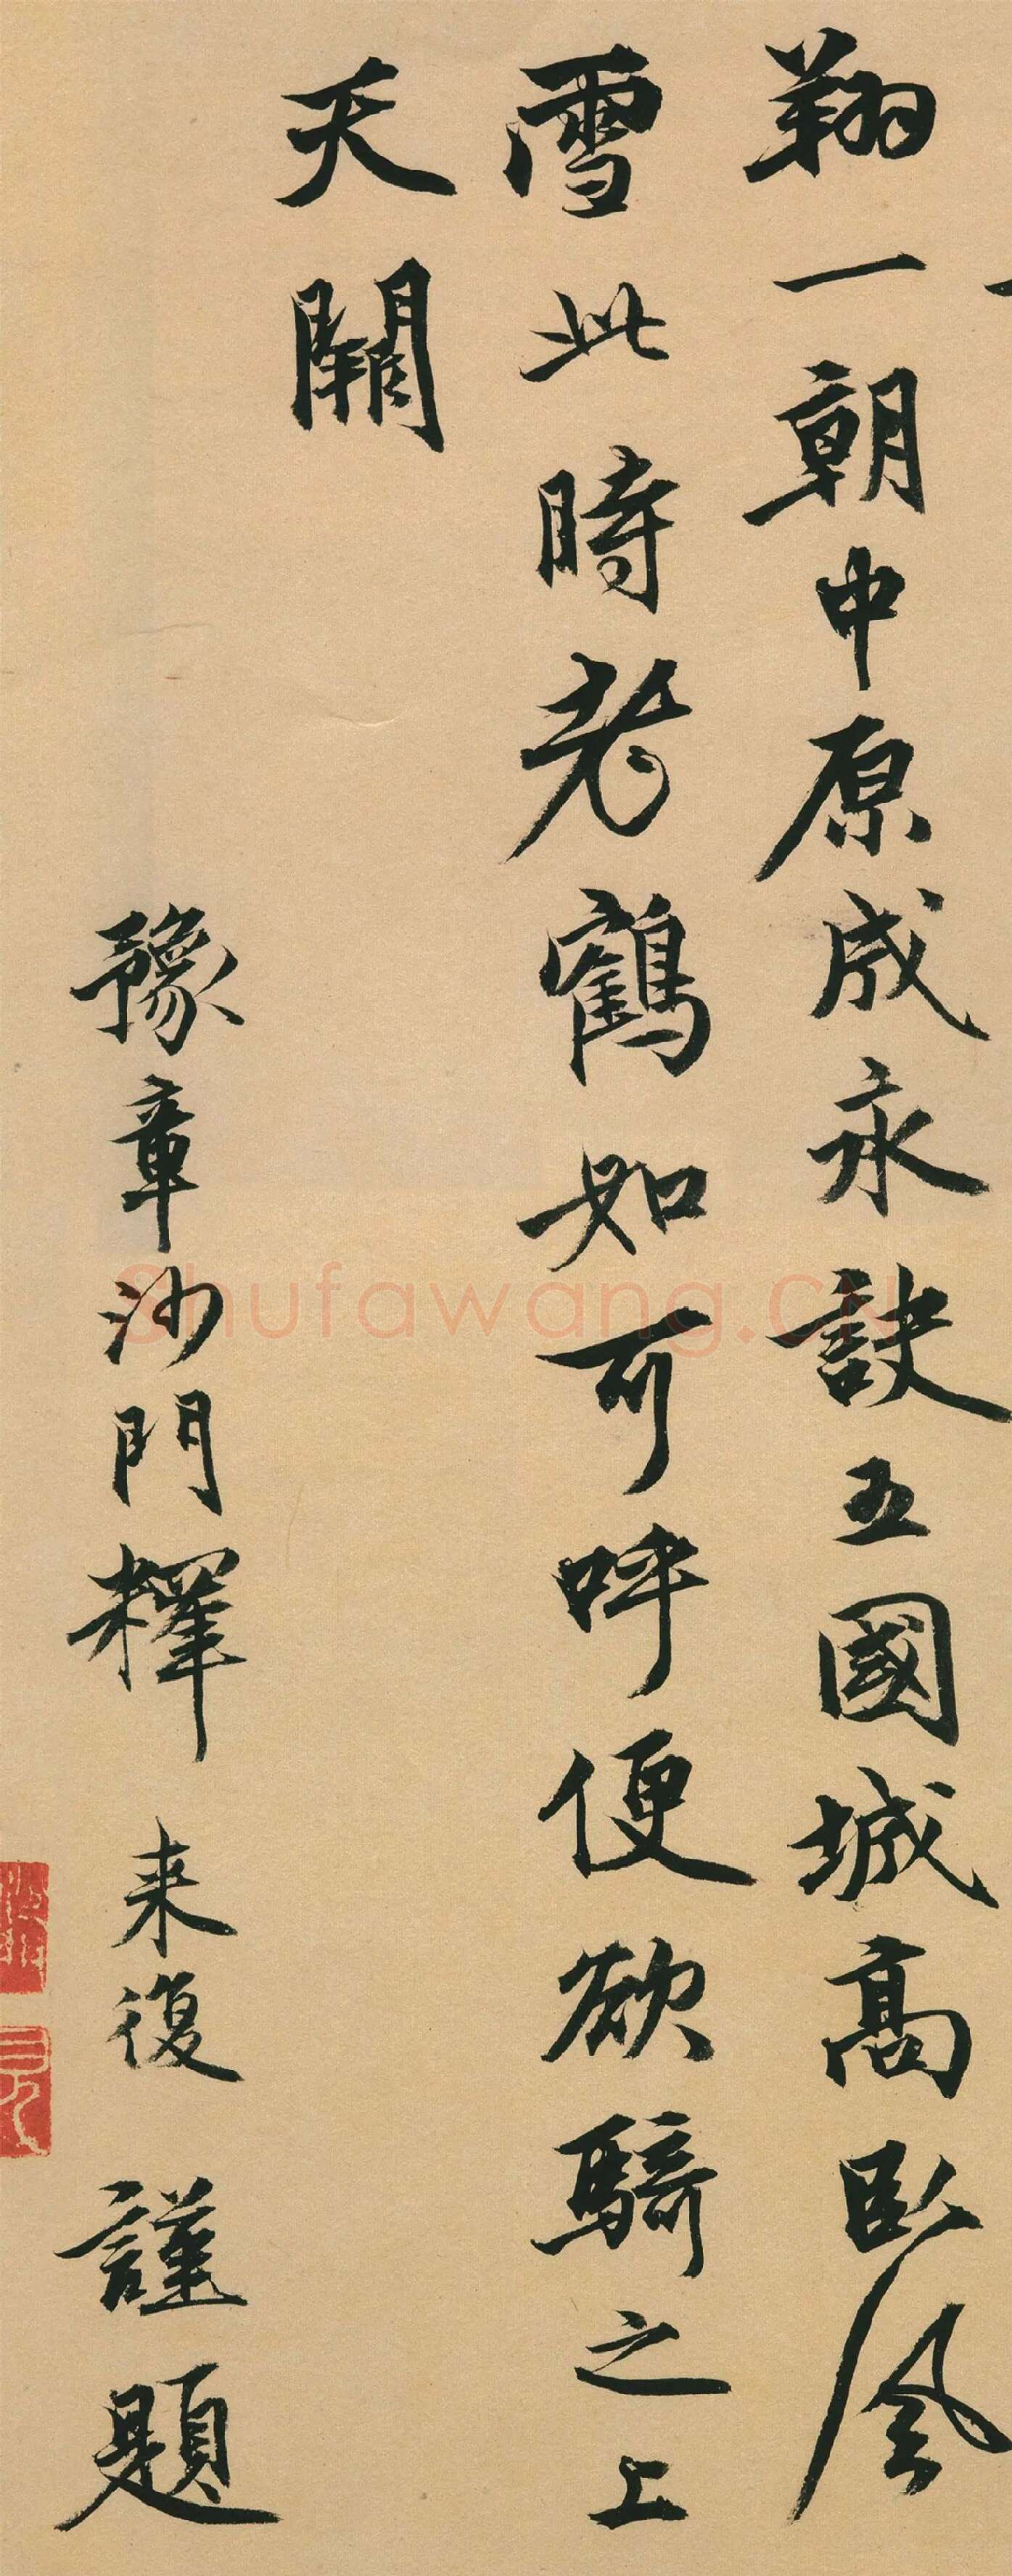 翔一朝中原成永訣五國城高臥風
雪此時老鶴如可呼便欲騎之上
天闕
豫章沙門釋來復謹題
Shufawang.CN